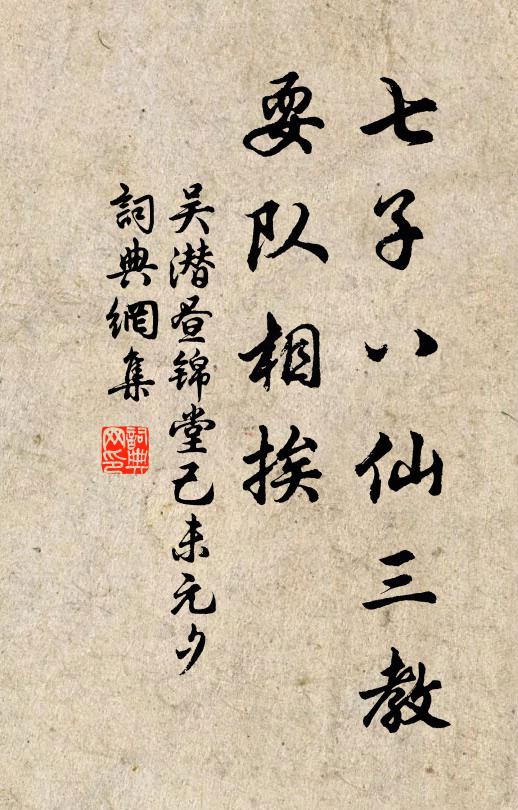 七子八仙三教
耍队相挨
吴潜昼锦堂己未元夕
詞典網集
詞典
网印